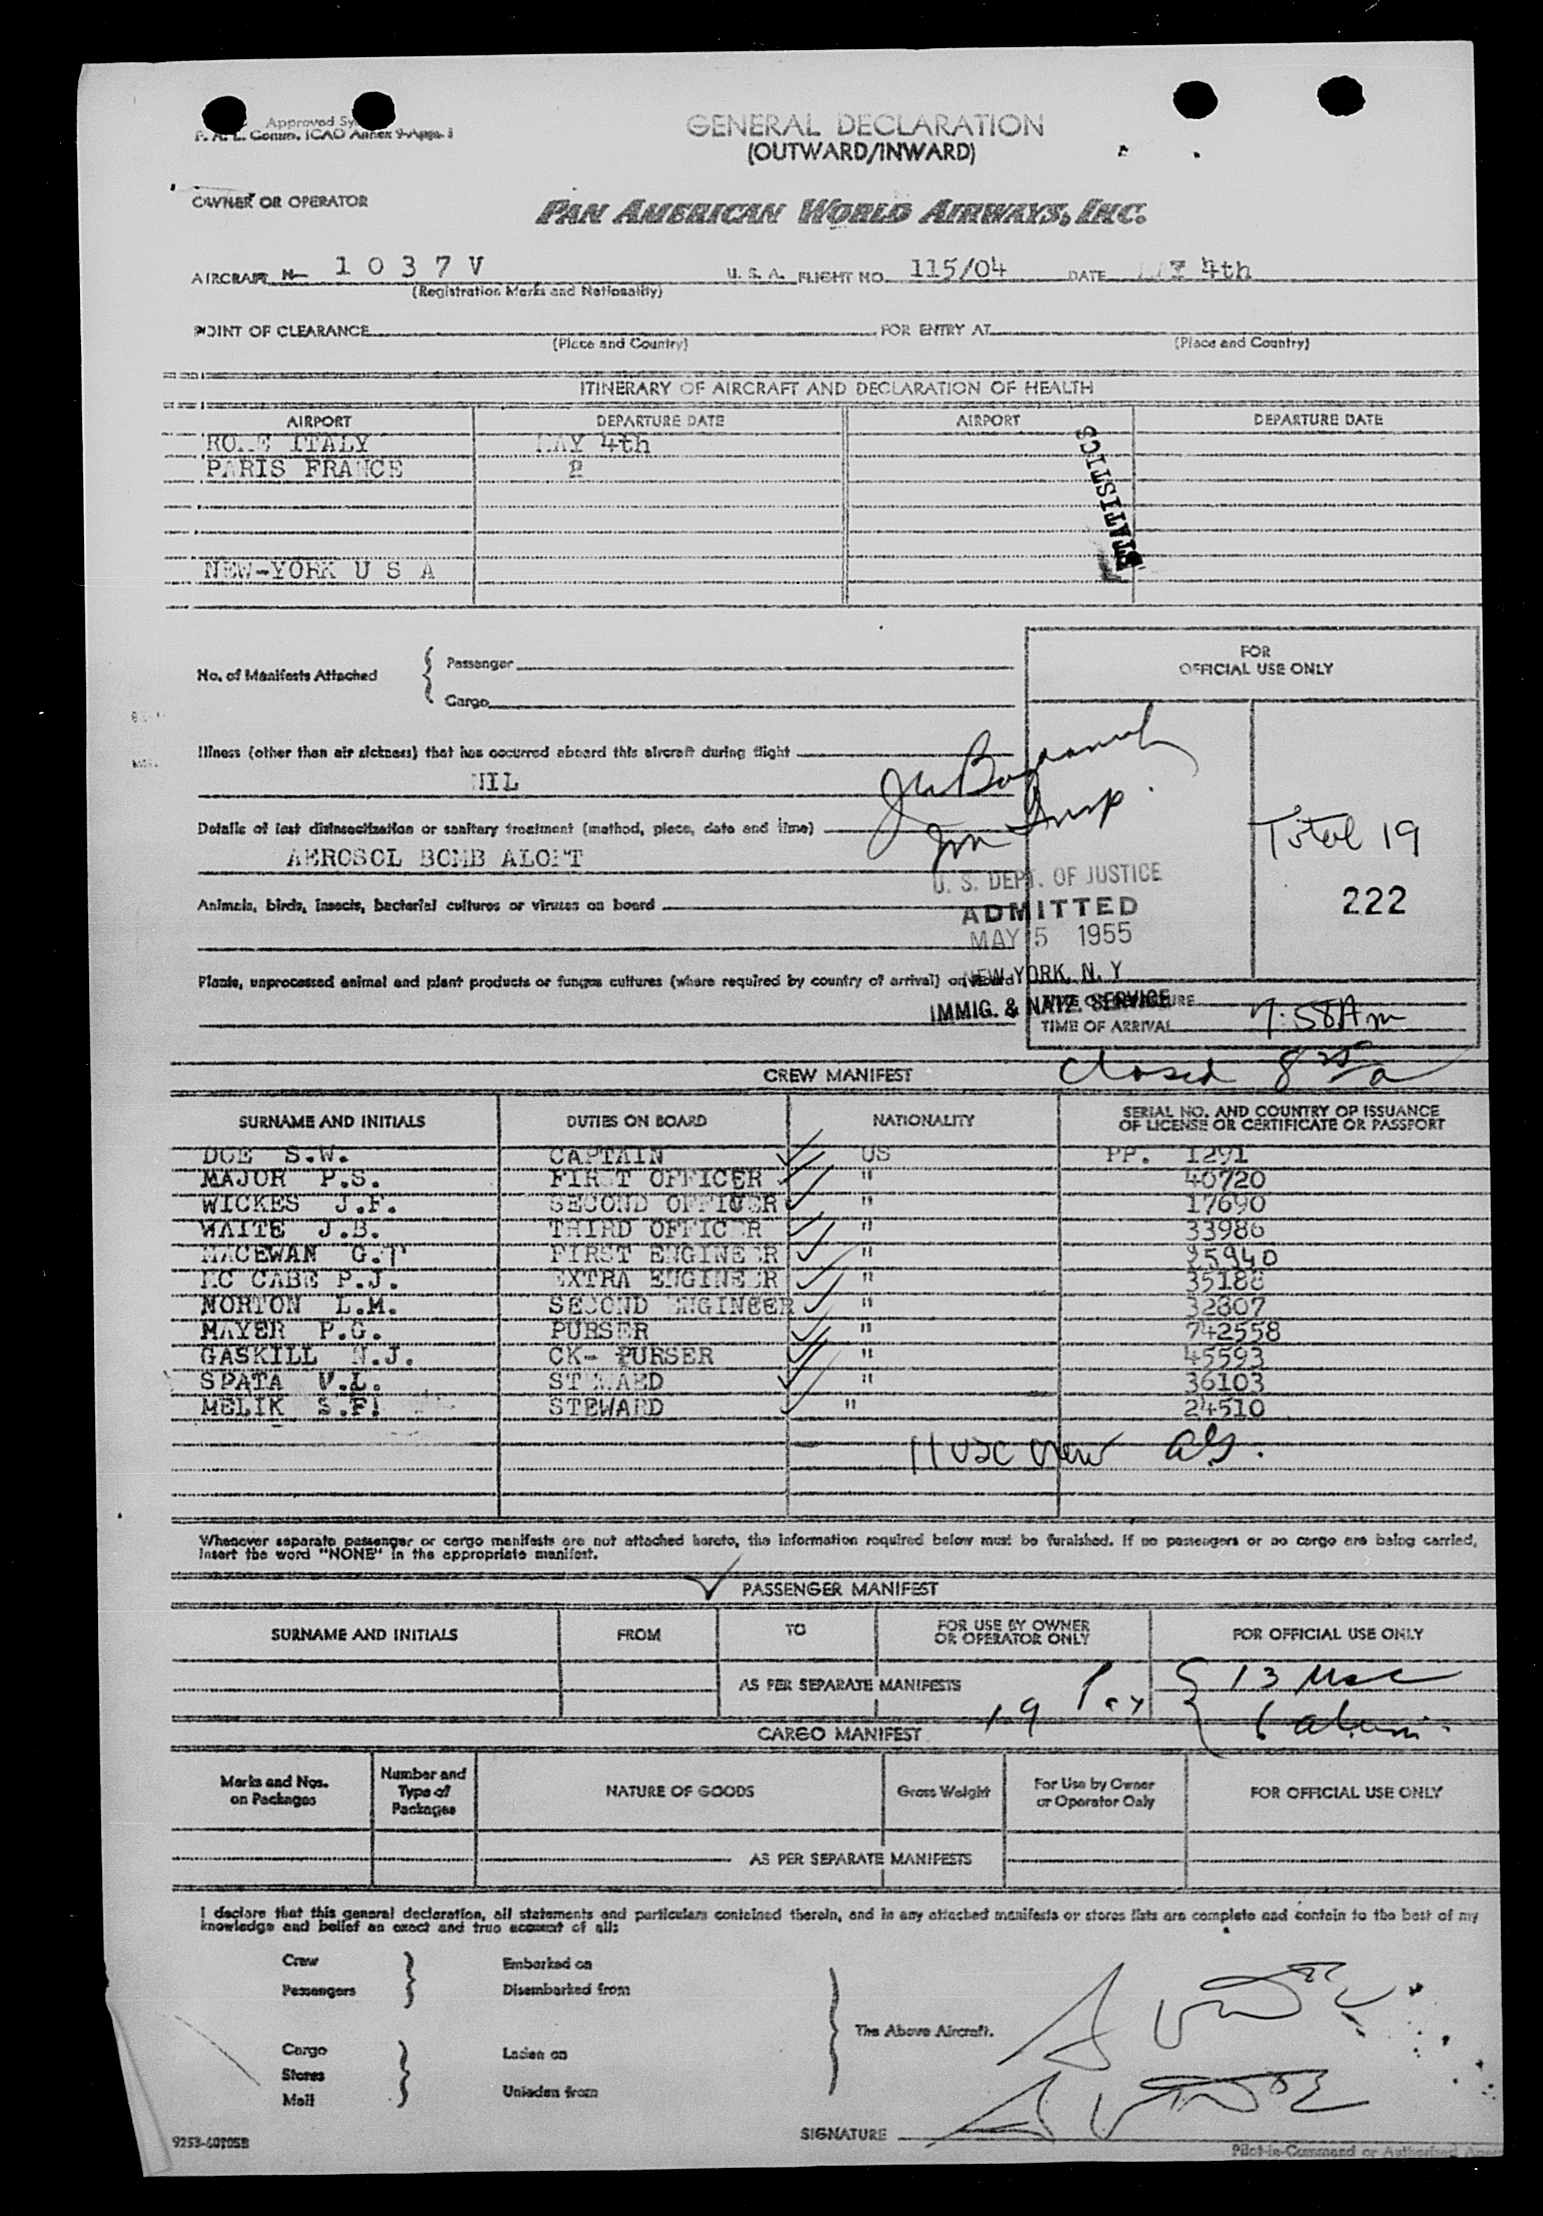 Approved
P. A. L. Comm. ICAO Annex 9-App. 1
GENERAL DECLARATION
(OUTWARD/INWARD)
OWNER OR OPERATOR
PAN AMERICAN WORLD AIRWAYS, INC.
AIRCRAFT N- 1 0 3 7 V U. S. A. FLIGHT NO. 115/04 DATE MAY 4th
(Registration Marks and Nationality)
POINT OF CLEARANCE FOR ENTRY AT
(Place and Country) (Place and Country)
ITINERARY OF AIRCRAFT AND DECLARATION OF HEALTH
AIRPORT DEPARTURE DATE AIRPORT DEPARTURE DATE
ROME ITALY MAY 4th
PARIS FRANCE
STATISTICS
NEW-YORK U S A
FOR
OFFICIAL USE ONLY
No. of Manifests Attached { Passenger
Cargo
Illness (other than air sickness) that has occurred aboard this aircraft during flight
NIL
Details of last disinsectization or sanitary treatment (method, place, date and time)
AEROSOL BOMB ALOFT
Imm Insp.
Total 19
222
U. S. DEPT. OF JUSTICE
ADMITTED
MAY 5 1955
NEW YORK, N. Y
IMMIG. & NATZ. SERVICE
Animals, birds, insects, bacterial cultures or viruses on board
Plants, unprocessed animal and plant products or fungus cultures (where required by country of arrival) on
TIME OF DEPARTURE
TIME OF ARRIVAL 7:58 Am
closed 8 25 a
CREW MANIFEST
SURNAME AND INITIALS DUTIES ON BOARD NATIONALITY SERIAL NO. AND COUNTRY OF ISSUANCE
OF LICENSE OR CERTIFICATE OR PASSPORT
DOE S.W. CAPTAIN US PP. 1291
MAJOR P.S. FIRST OFFICER " 40720
WICKES J.F. SECOND OFFICER " 17690
WAITE J.B. THIRD OFFICER " 33986
MACEWAN G.T FIRST ENGINEER " 25940
MC CABE P.J. EXTRA ENGINEER " 35188
NORTON L.M. SECOND ENGINEER " 32807
MAYER P.G. PURSER " 742558
GASKILL N.J. CK- PURSER " 45593
SPATA V.L. STEWARD " 36103
MELIK S.F. STEWARD " 24510
11 USC crew
Whenever separate passenger or cargo manifests are not attached hereto, the information required below must be furnished. If no passengers or no cargo are being carried,
insert the word "NONE" in the appropriate manifest.
PASSENGER MANIFEST
SURNAME AND INITIALS FROM TO FOR USE BY OWNER
OR OPERATOR ONLY FOR OFFICIAL USE ONLY
AS PER SEPARATE MANIFESTS
19 Pax { 13 USC
6 aliens
CARGO MANIFEST
Marks and Nos.
on Packages Number and
Type of
Packages NATURE OF GOODS Gross Weight For Use by Owner
or Operator Only FOR OFFICIAL USE ONLY
AS PER SEPARATE MANIFESTS
I declare that this general declaration, all statements and particulars contained therein, and in any attached manifests or stores lists are complete and contain to the best of my
knowledge and belief an exact and true account of all:
Crew Embarked on
Passengers Disembarked from
The Above Aircraft.
Cargo Laden on
Stores
Mail Unladen from
SIGNATURE
Pilot-in-Command or Authorized